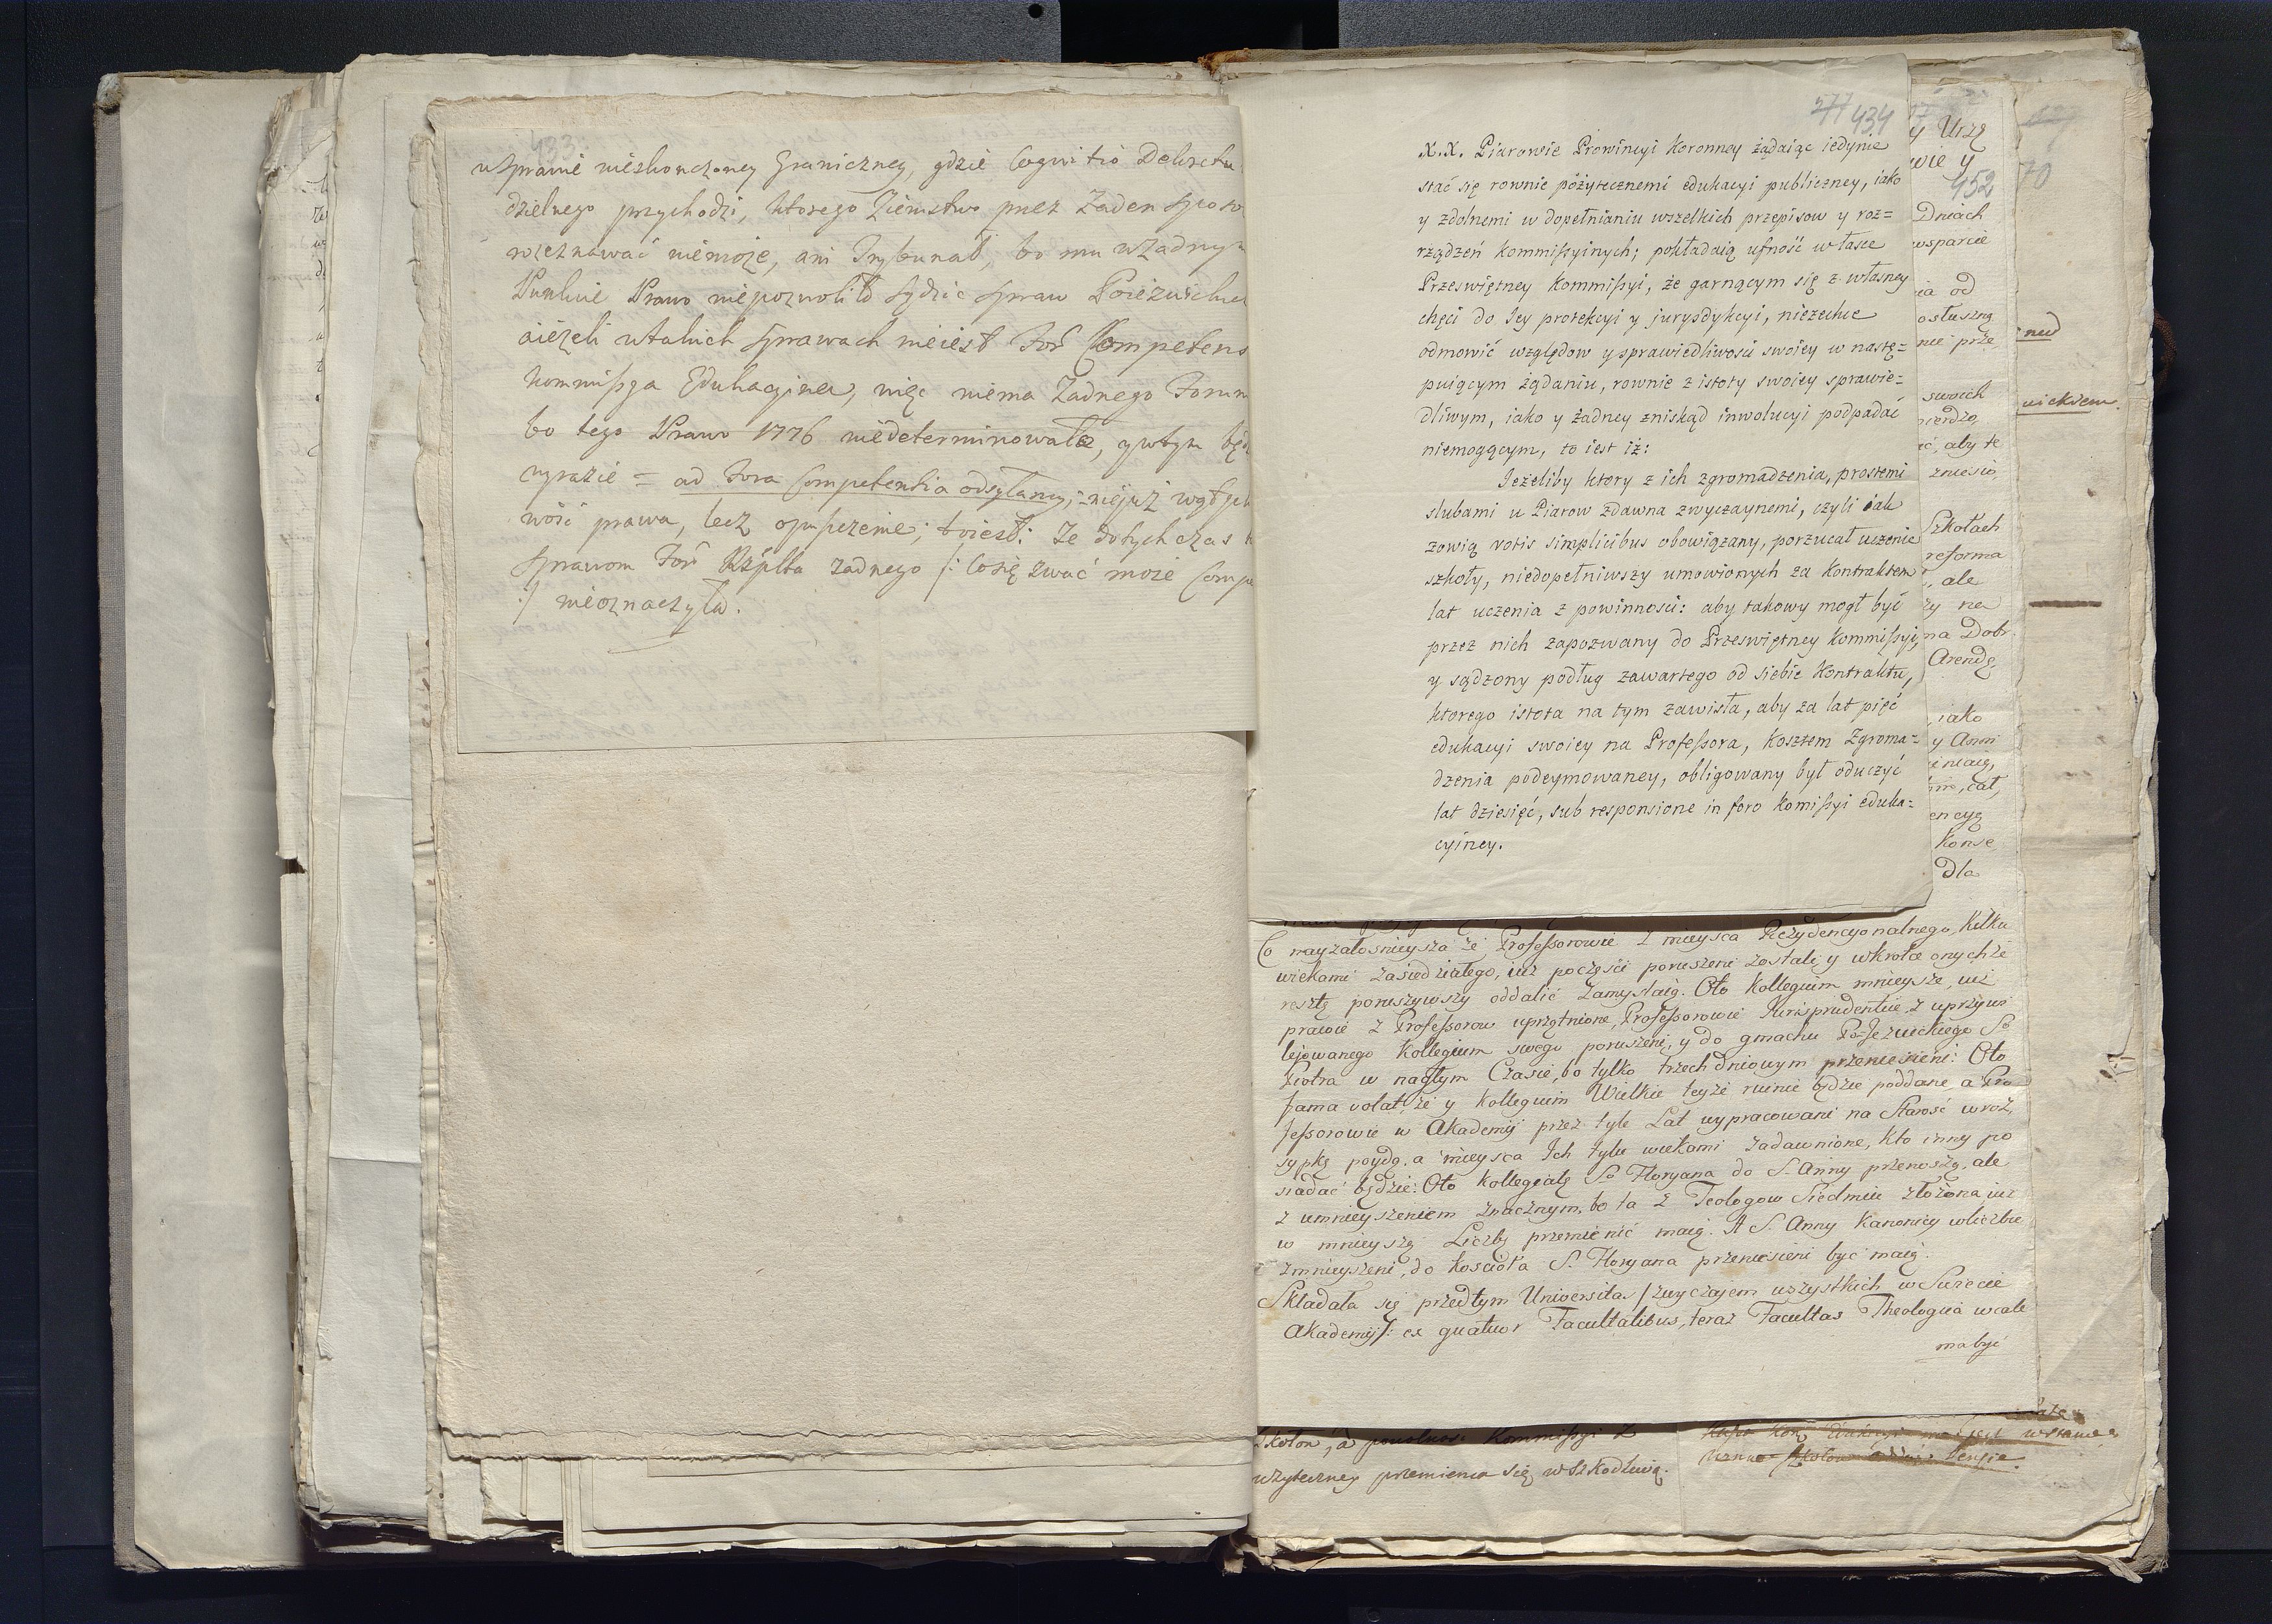 433.
w sprawie nieskonczoney Graniczney, gdzie Cognitio Dekretu
dzielnego przychodzi, ktorego Ziemstwo przez Żaden sposo
rozeznawać niemoże, ani Trybunał, bo mu w żadnym
Punkcie Prawo niepozwoliło sądzić spraw Poiezuickich
aieżeli w takich sprawach nieiest For Competens
Kommißya Edukacyina, więc niema Żadnego Forum
bo tego Prawo 1776 niedeterminowało, y w tym
wyrazie = ad Fora Competentia odsyłamy; =
ność prawa, lecz opuszczenie; toiest: Że dotychczas
sprawom For Rzplta żadnego /: Co się zwać może Comp
:/ nieoznaczyła.
277 434
X.X. Piarowie Prowincyi Koronney żądaiąc iedynie
stać się rownie pożytecznemi edukacyi publiczney, iako
y zdolnemi w dopełnianiu wszelkich przepisow y roz=
rządzeń Kommißyinych; pokładaią ufność w łasce
Przeswiętney Kommißyi, że garnącym się z własney
chęci do Jey protekcyi y jurysdykcyi, niezechce
odmowić względow y sprawiedliwości swoiey w nastę=
puiącym żądaniu, rownie z istoty swoiey sprawie=
dliwym, iako y żadney zniskąd inwolucyi podpadać
niemogącym, to iest iż:
Jeżeliby ktory z ich zgromadzenia, prostemi
slubami u Piarow zdawna zwyczaynemi, czyli iak
zowią votis simplicibus obowiązany, porzucał uczenie
szkoły, niedopełniwszy umowionych za Kontraktem
lat uczenia z powinności: aby takowy mogł być
przez nich zapozwany do Przeswiętney Kommißyi,
y sądzony podług zawartego od siebie Kontraktu,
ktorego istota na tym zawisła, aby za lat pięć
edukacyi swoiey na Profeßora, kosztem Zgroma=
dzenia podeymowaney, obligowany był oduczyć
lat dziesięć, sub responsione in foro Komißyi eduka=
cyiney.
y Urzę
wie y
452
70
Dniach
wsparcie
ia od
osłuszną
nie prze
swoich
ć, aby te
znieśio
Szkołach
reforma
, ale
zy na
na Dobr
Arendę
iako
y Anni
encyą
Konse
Dla
Co nayżałośnieysza że Profeßorowie z mieysca Rezydencyonalnego, kilku
wiekami zasiedziałego, iuż poczęści poruszeni zostali y wkrotce onychże
resztę poruszywszy oddalić zamyślaią. Oto Kollegium mnieysze, iuż
prawie z Profeßorow uprzątnione, Profeßorowie Jurisprudentiæ z uprzywi
lejowanego Kollegium swego poruszeni, y do gmachu Po=Jezuickiego So
Piotra w nagłym Czasie, bo tylko trzech dniowym przeniesieni: Oto
fama volat, że y Kollegium Wielkie teyże ruinie będzie poddane, a Pro
feßorowie w Akademij przez tyle Lat wypracowani na Starość w roz,
sypkę poydą, a mieysca Ich tylu wiekami zadawnione, kto inny po
siadać będzie: Oto Kollegiatę So Floryana do S. Anny przenoszą, ale
z umnieyszeniem znacznym, bo ta z Teologow Siedmiu złożona iuż
w mnieyszą Liczbę przemienić maią. A S. Anny Kanonicy w liczbie
zmnieyszeni, do Kościoła S. Floryana przeniesieni być maią.
Składała się przedtym Universitas /zwyczajem wszystkich w Swiecie
Akademij/: ex quatuor Facultatibus, teraz Facultas Theologica wcale
ma być
Szkołom, a powolność Kommißyi z
użyteczney przemienia się w Szkodliwą.